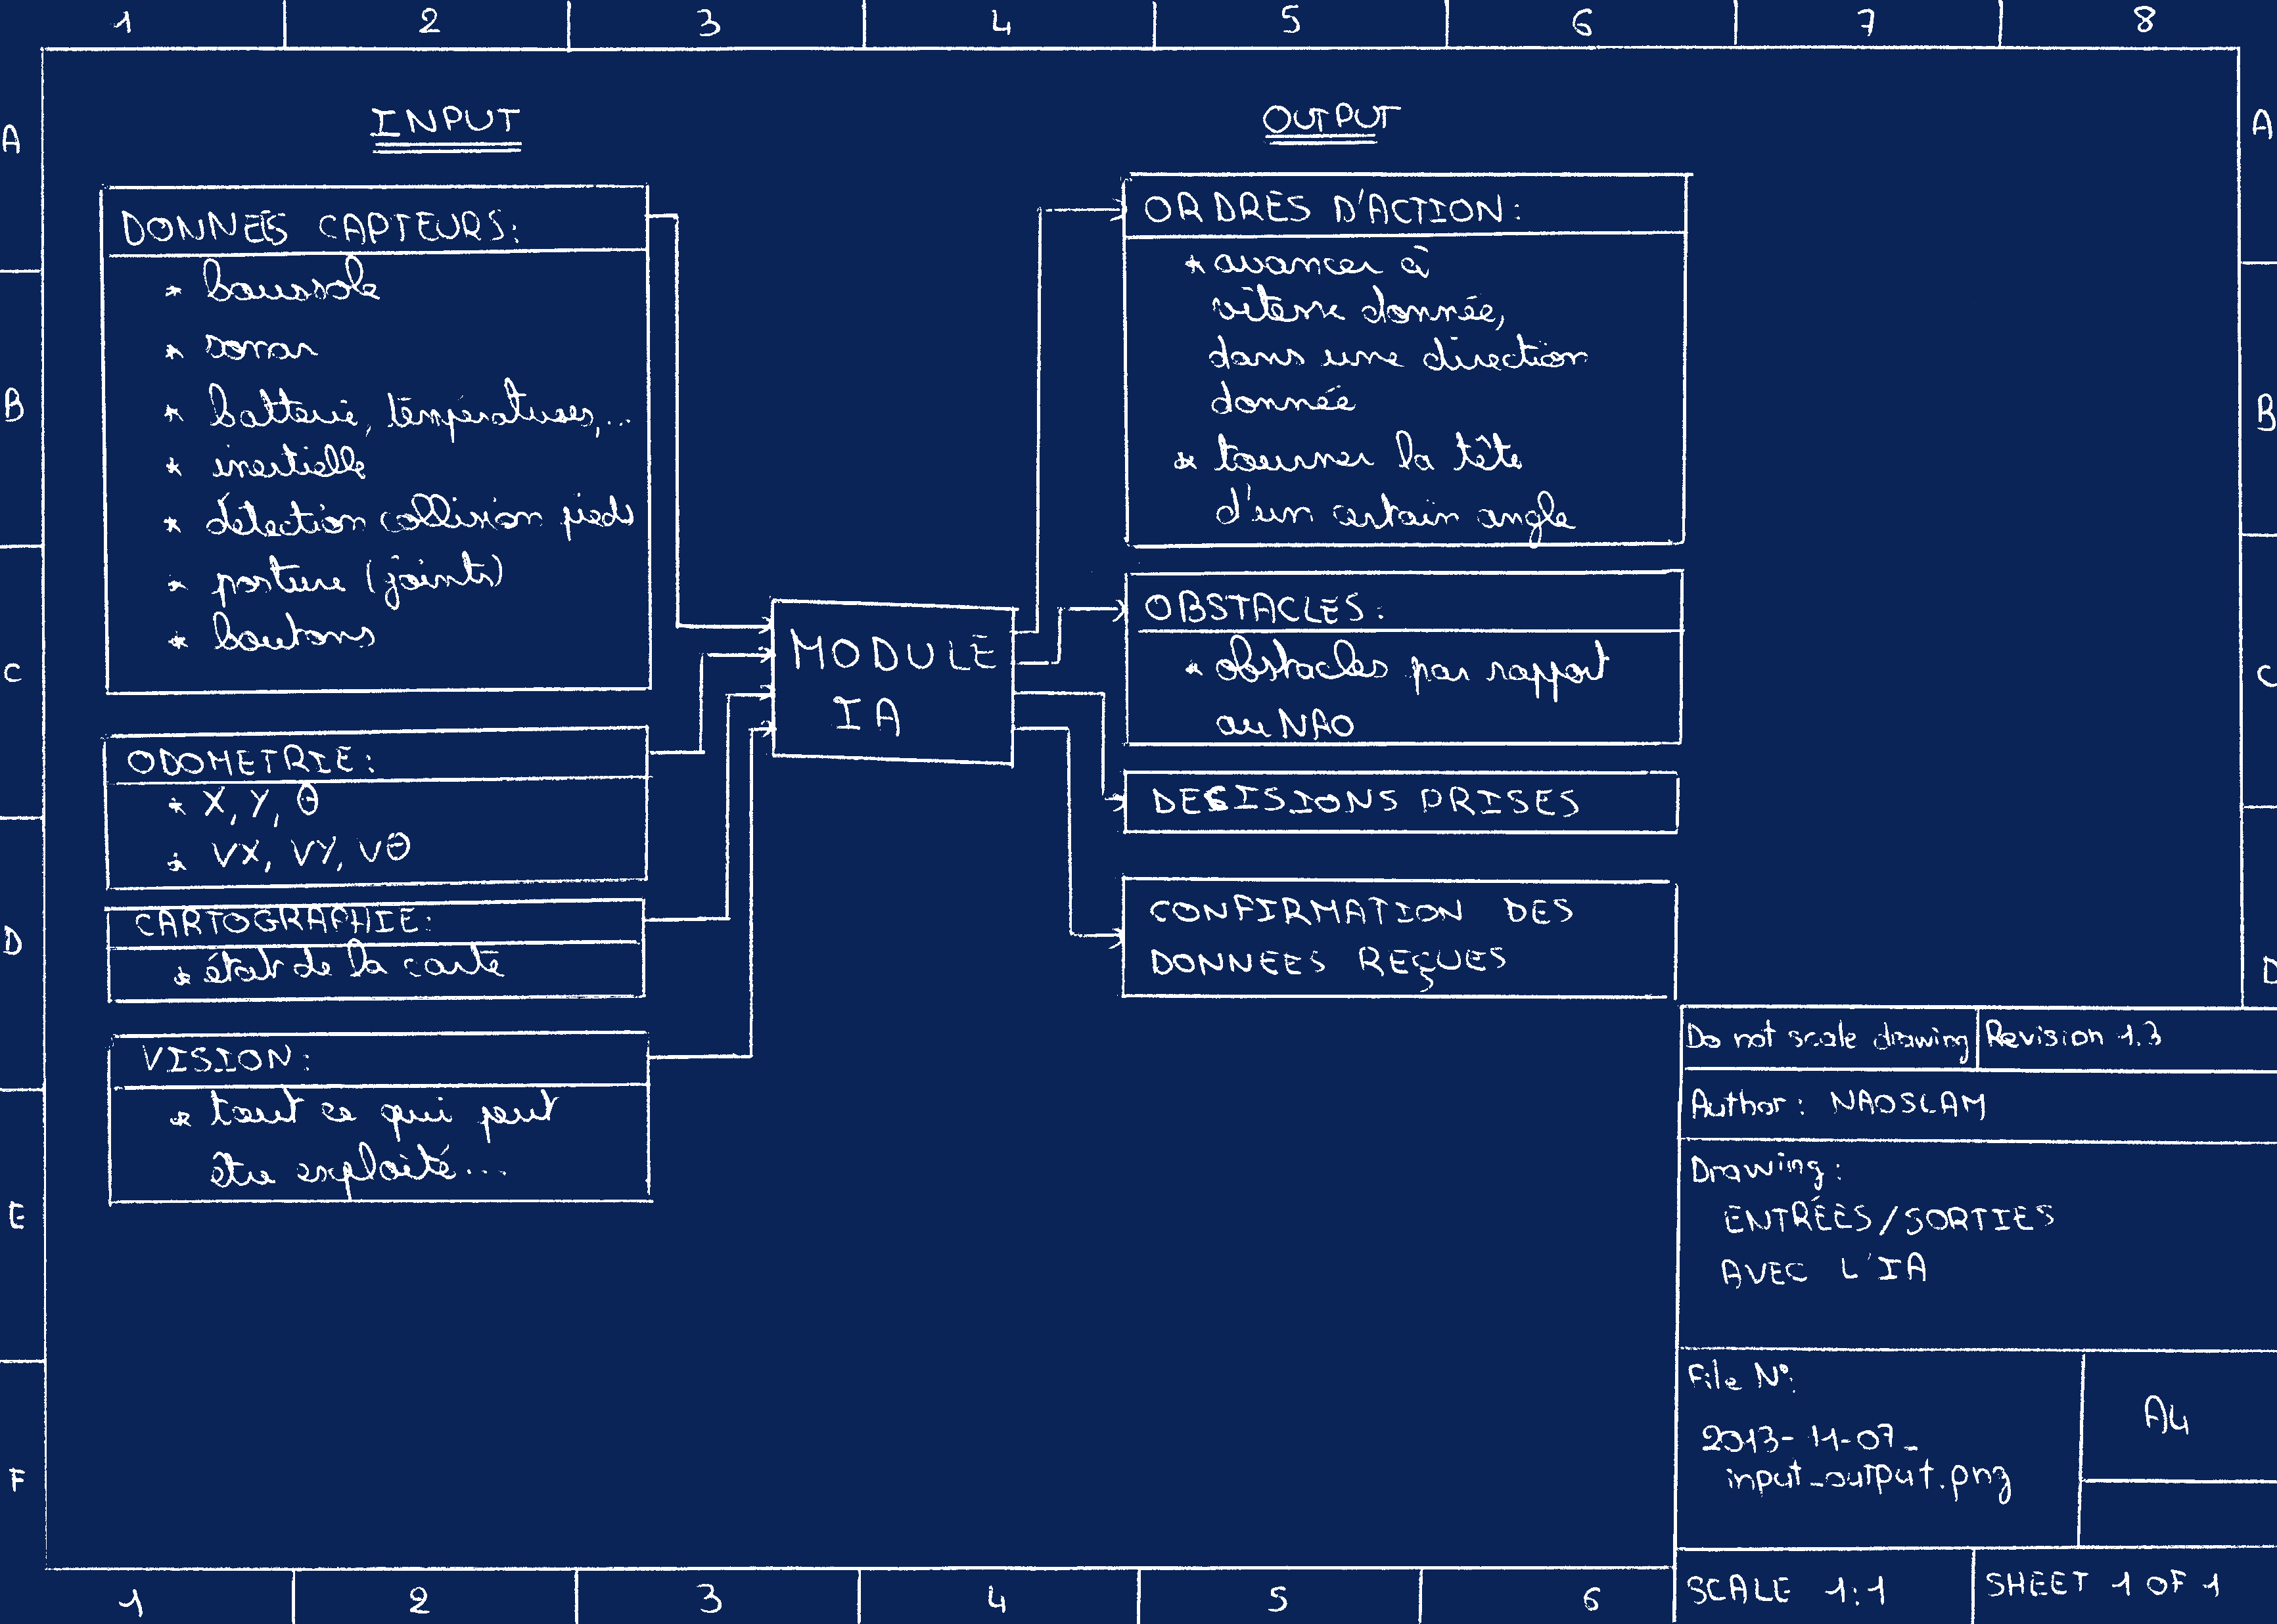 1 2 3 4 5 6 7 8
A
B
C
D
E
F
A
B
C
D
INPUT
DONNEES CAPTEURS:
* boussole
* sonar
* batterie, températures,...
* inertielle
* détection collision pieds
* posture (joints)
* boutons
ODOMETRIE:
* X, Y, θ
* VX, VY, Vθ
CARTOGRAPHIE:
* état de la carte
VISION:
* tout ce qui peut
être exploité...
MODULE
IA
OUTPUT
ORDRES D'ACTION:
* avancer à
vitesse donnée,
dans une direction
donnée
* tourner la tête
d'un certain angle
OBSTACLES:
* obstacles par rapport
au NAO
DECISIONS PRISES
CONFIRMATION DES
DONNEES REÇUES
Do not scale drawing
Revision 1.3
Author: NAOSLAM
Drawing:
ENTRÉES/SORTIES
AVEC L'IA
File N°:
2013-11-07_
input_output.png
A4
SCALE 1:1
SHEET 1 OF 1
1 2 3 4 5 6